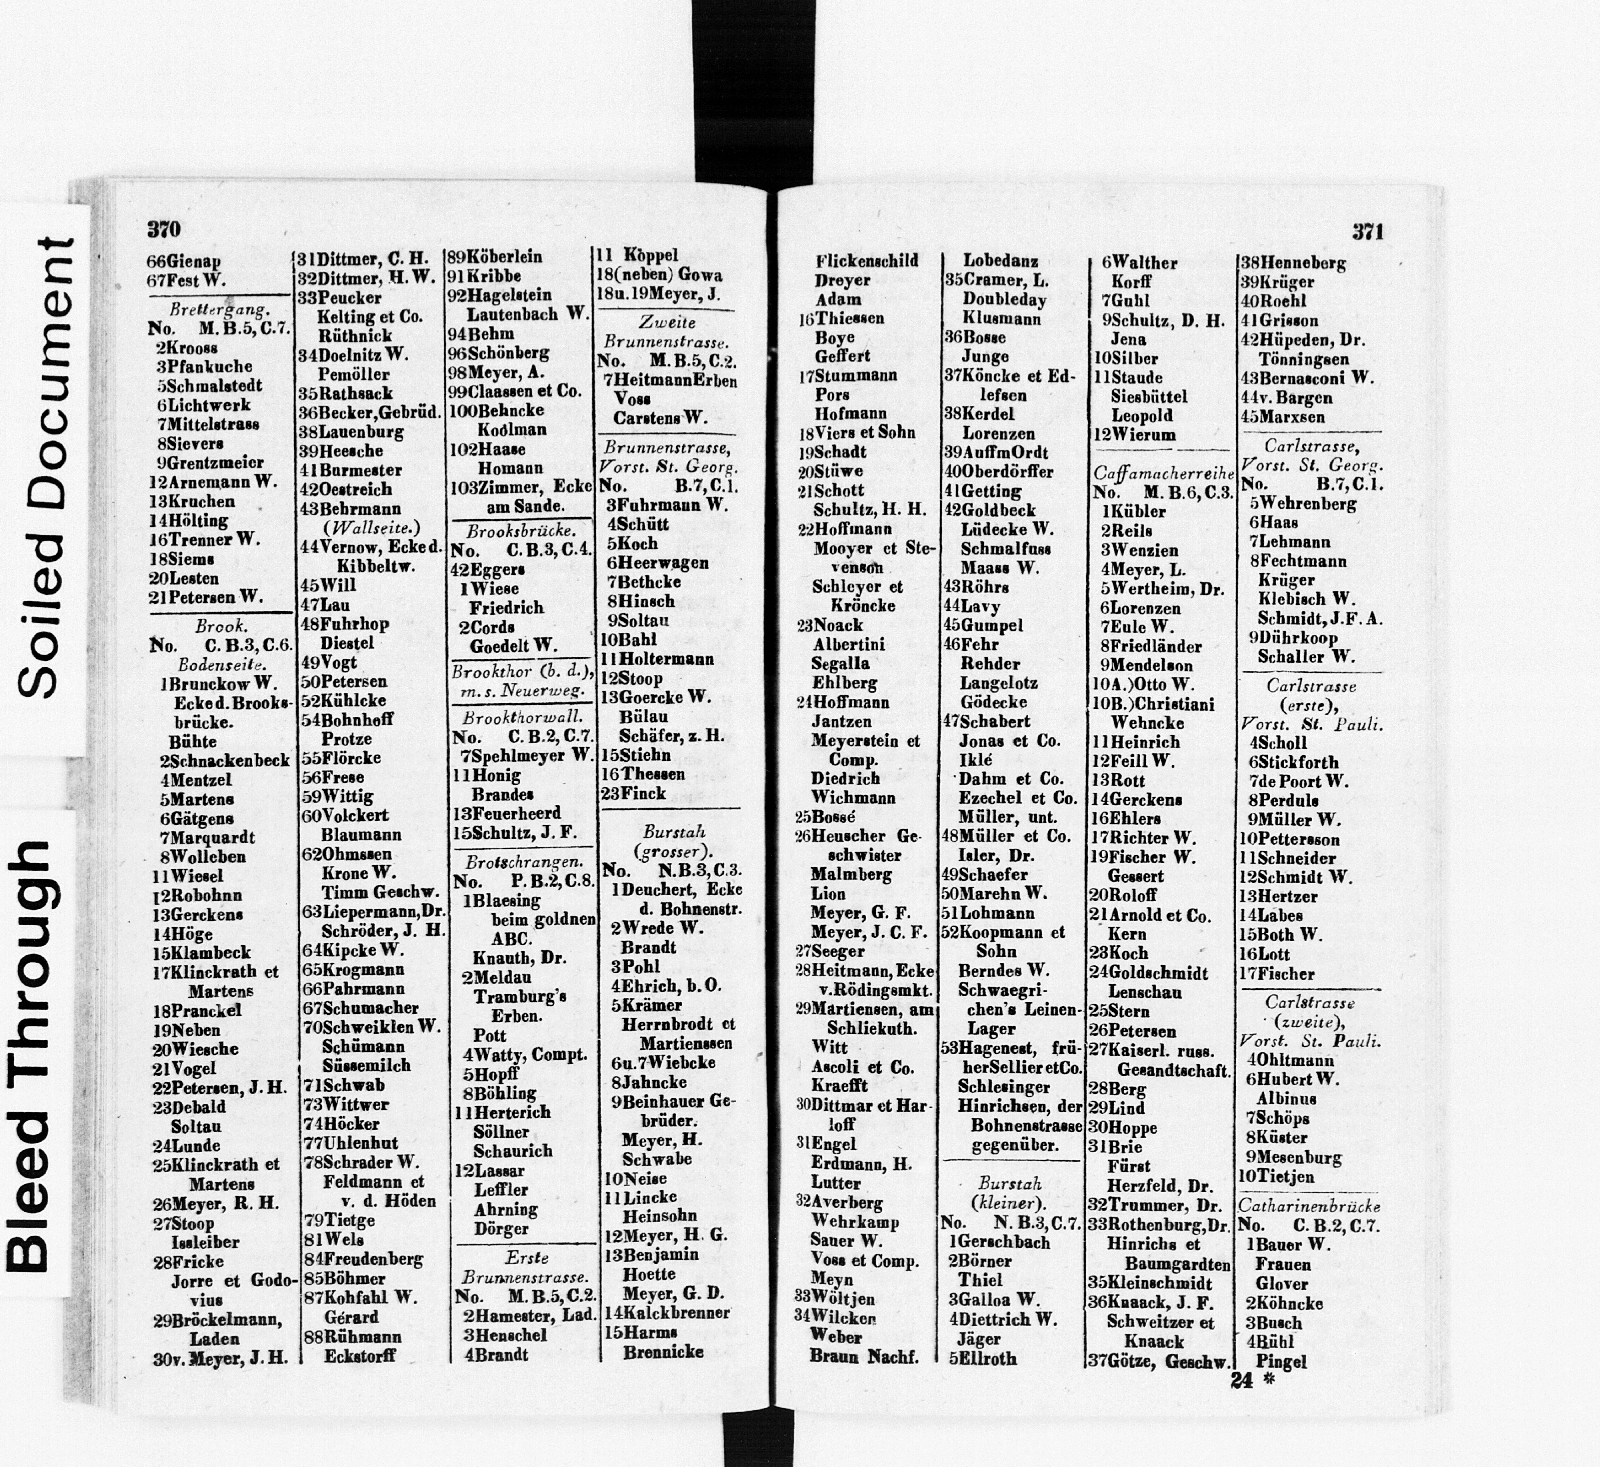 Soiled Document
Bleed Through
370
66Gienap
67Fest W.
Brettergang.
No. M. B.5, C.7.
2Krooss
3Pfankuche
5Schmalstedt
6Lichtwerk
7Mittelstrass
8Sievers
9Grentzmeier
12Arnemann W.
13Kruchen
14Hölting
16Trenner W.
18Siems
20Lesten
21Petersen W.
Brook.
No. C. B.3, C.6.
Bodenseite.
1Brunckow W.
Ecke d. Brooks-
brücke.
Bühte
2Schnackenbeck
4Mentzel
5Martens
6Gätgens
7Marquardt
8Wolleben
11Wiesel
12Robohnn
13Gerckens
14Höge
15Klambeck
17Klinckrath et
Martens
18Pranckel
19Neben
20Wiesche
21Vogel
22Petersen, J. H.
23Debald
Soltau
24Lunde
25Klinckrath et
Martens
26Meyer, R. H.
27Stoop
Issleiber
28Fricke
Jorre et Godo-
vius
29Bröckelmann,
Laden
30v. Meyer, J. H.
31Dittmer, C. H.
32Dittmer, H. W.
33Peucker
Kelting et Co.
Rüthnick
34Doelnitz W.
Pemöller
35Rathsack
36Becker, Gebrüd.
38Lauenburg
39Heesche
41Burmester
42Oestreich
43Behrmann
(Wallseite.)
44Vernow, Ecke d.
Kibbeltw.
45Will
47Lau
48Fuhrhop
Diestel
49Vogt
50Petersen
52Kühlcke
54Bohnhoff
Protze
55Flörcke
56Frese
59Wittig
60Volckert
Blaumann
62Ohmssen
Krone W.
Timm Geschw.
63Liepermann, Dr.
Schröder, J. H.
64Kipcke W.
65Krogmann
66Pahrmann
67Schumacher
70Schweiklen W.
Schümann
Süssemilch
71Schwab
73Wittwer
74Höcker
77Uhlenhut
78Schrader W.
Feldmann et
v. d. Höden
79Tietge
81Wels
84Freudenberg
85Böhmer
87Kohfahl W.
Gérard
88Rühmann
Eckstorff
89Köberlein
91Kribbe
92Hagelstein
Lautenbach W.
94Behm
96Schönberg
98Meyer, A.
99Claassen et Co.
100Behncke
Koolman
102Haase
Homann
103Zimmer, Ecke
am Sande.
Brooksbrücke.
No. C. B.3, C.4.
42Eggers
1Wiese
Friedrich
2Cords
Goedelt W.
Brookthor (b. d.),
m. s. Neuerweg.
Brookthorwall.
No. C. B.2, C.7.
7Spehlmeyer W.
11Honig
Brandes
13Feuerheerd
15Schultz, J. F.
Brotschrangen.
No. P. B.2, C.8.
1Blaesing
beim goldnen
ABC.
Knauth, Dr.
2Meldau
Tramburg's
Erben.
Pott
4Watty, Compt.
5Hopff
8Böhling
11Herterich
Söllner
Schaurich
12Lassar
Leffler
Ahrning
Dörger
Erste
Brunnenstrasse.
No. M. B.5, C.2.
2Hamester, Lad.
3Henschel
4Brandt
11 Köppel
18(neben) Gowa
18u.19Meyer, J.
Zweite
Brunnenstrasse.
No. M. B.5, C.2.
7Heitmann Erben
Voss
Carstens W.
Brunnenstrasse,
Vorst. St. Georg.
No. B.7, C.1.
3Fuhrmann W.
4Schütt
5Koch
6Heerwagen
7Bethcke
8Hinsch
9Soltau
10Bahl
11Holtermann
12Stoop
13Goercke W.
Bülau
Schäfer, z. H.
15Stiehn
16Thessen
23Finck
Burstah
(grosser).
No. N. B.3, C.3.
1Deuchert, Ecke
d. Bohnenstr.
2Wrede W.
Brandt
3Pohl
4Ehrich, b. O.
5Krämer
Herrnbrodt et
Martienssen
6u.7Wiebcke
8Jahncke
9Beinhauer Ge-
brüder.
Meyer, H.
Schwabe
10Neise
11Lincke
Heinsohn
12Meyer, H. G.
13Benjamin
Hoette
Meyer, G. D.
14Kalckbrenner
15Harms
Brennicke
371
Flickenschild
Dreyer
Adam
16Thiessen
Boye
Geffert
17Stummann
Pors
Hofmann
18Viers et Sohn
19Schadt
20Stüwe
21Schott
Schultz, H. H.
22Hoffmann
Mooyer et Ste-
venson
Schleyer et
Kröncke
23Noack
Albertini
Segalla
Ehlberg
24Hoffmann
Jantzen
Meyerstein et
Comp.
Diedrich
Wichmann
25Bossé
26Heuscher Ge-
schwister
Malmberg
Lion
Meyer, G. F.
Meyer, J. C. F.
27Seeger
28Heitmann, Ecke
v. Rödingsmkt.
29Martiensen, am
Schliekuth.
Witt
Ascoli et Co.
Kraefft
30Dittmar et Har-
loff
31Engel
Erdmann, H.
Lutter
32Averberg
Wehrkamp
Sauer W.
Voss et Comp.
Meyn
33Wöltjen
34Wilcken
Weber
Braun Nachf.
Lobedanz
35Cramer, L.
Doubleday
Klusmann
36Bosse
Junge
37Köncke et Ed-
lefsen
38Kerdel
Lorenzen
39AuffmOrdt
40Oberdörffer
41Getting
42Goldbeck
Lüdecke W.
Schmalfuss
Maass W.
43Röhrs
44Lavy
45Gumpel
46Fehr
Rehder
Langelotz
Gödecke
47Schabert
Jonas et Co.
Iklé
Dahm et Co.
Ezechel et Co.
Müller, unt.
48Müller et Co.
Isler, Dr.
49Schaefer
50Marehn W.
51Lohmann
52Koopmann et
Sohn
Berndes W.
Schwaegri-
chen's Leinen-
Lager
53Hagenest, frü-
her Sellier et Co.
Schlesinger
Hinrichsen, der
Bohnenstrasse
gegenüber.
Burstah
(kleiner).
No. N. B.3, C.7.
1Gerschbach
2Börner
Thiel
3Galloa W.
4Diettrich W.
Jäger
5Ellroth
6Walther
Korff
7Guhl
9Schultz, D. H.
Jena
10Silber
11Staude
Siesbüttel
Leopold
12Wierum
Caffamacherreihe
No. M. B.6, C.3.
1Kübler
2Reils
3Wenzien
4Meyer, L.
5Wertheim, Dr.
6Lorenzen
7Eule W.
8Friedländer
9Mendelson
10A.)Otto W.
10B.)Christiani
Wehncke
11Heinrich
12Feill W.
13Rott
14Gerckens
16Ehlers
17Richter W.
19Fischer W.
Gessert
20Roloff
21Arnold et Co.
Kern
23Koch
24Goldschmidt
Lenschau
25Stern
26Petersen
27Kaiserl. russ.
Gesandtschaft.
28Berg
29Lind
30Hoppe
31Brie
Fürst
Herzfeld, Dr.
32Trummer, Dr.
33Rothenburg, Dr.
Hinrichs et
Baumgardten
35Kleinschmidt
36Knaack, J. F.
Schweitzer et
Knaack
37Götze, Geschw.
38Henneberg
39Krüger
40Roehl
41Grisson
42Hüpeden, Dr.
Tönningsen
43Bernasconi W.
44v. Bargen
45Marxsen
Carlstrasse,
Vorst. St. Georg.
No. B.7, C.1.
5Wehrenberg
6Haas
7Lehmann
8Fechtmann
Krüger
Klebisch W.
Schmidt, J. F. A.
9Dührkoop
Schaller W.
Carlstrasse
(erste),
Vorst. St. Pauli.
4Scholl
6Stickforth
7de Poort W.
8Perduls
9Müller W.
10Pettersson
11Schneider
12Schmidt W.
13Hertzer
14Labes
15Both W.
16Lott
17Fischer
Carlstrasse
(zweite),
Vorst. St. Pauli.
4Ohltmann
6Hubert W.
Albinus
7Schöps
8Küster
9Mesenburg
10Tietjen
Catharinenbrücke
No. C. B.2, C.7.
1Bauer W.
Frauen
Glover
2Köhncke
3Busch
4Bühl
Pingel
24 *